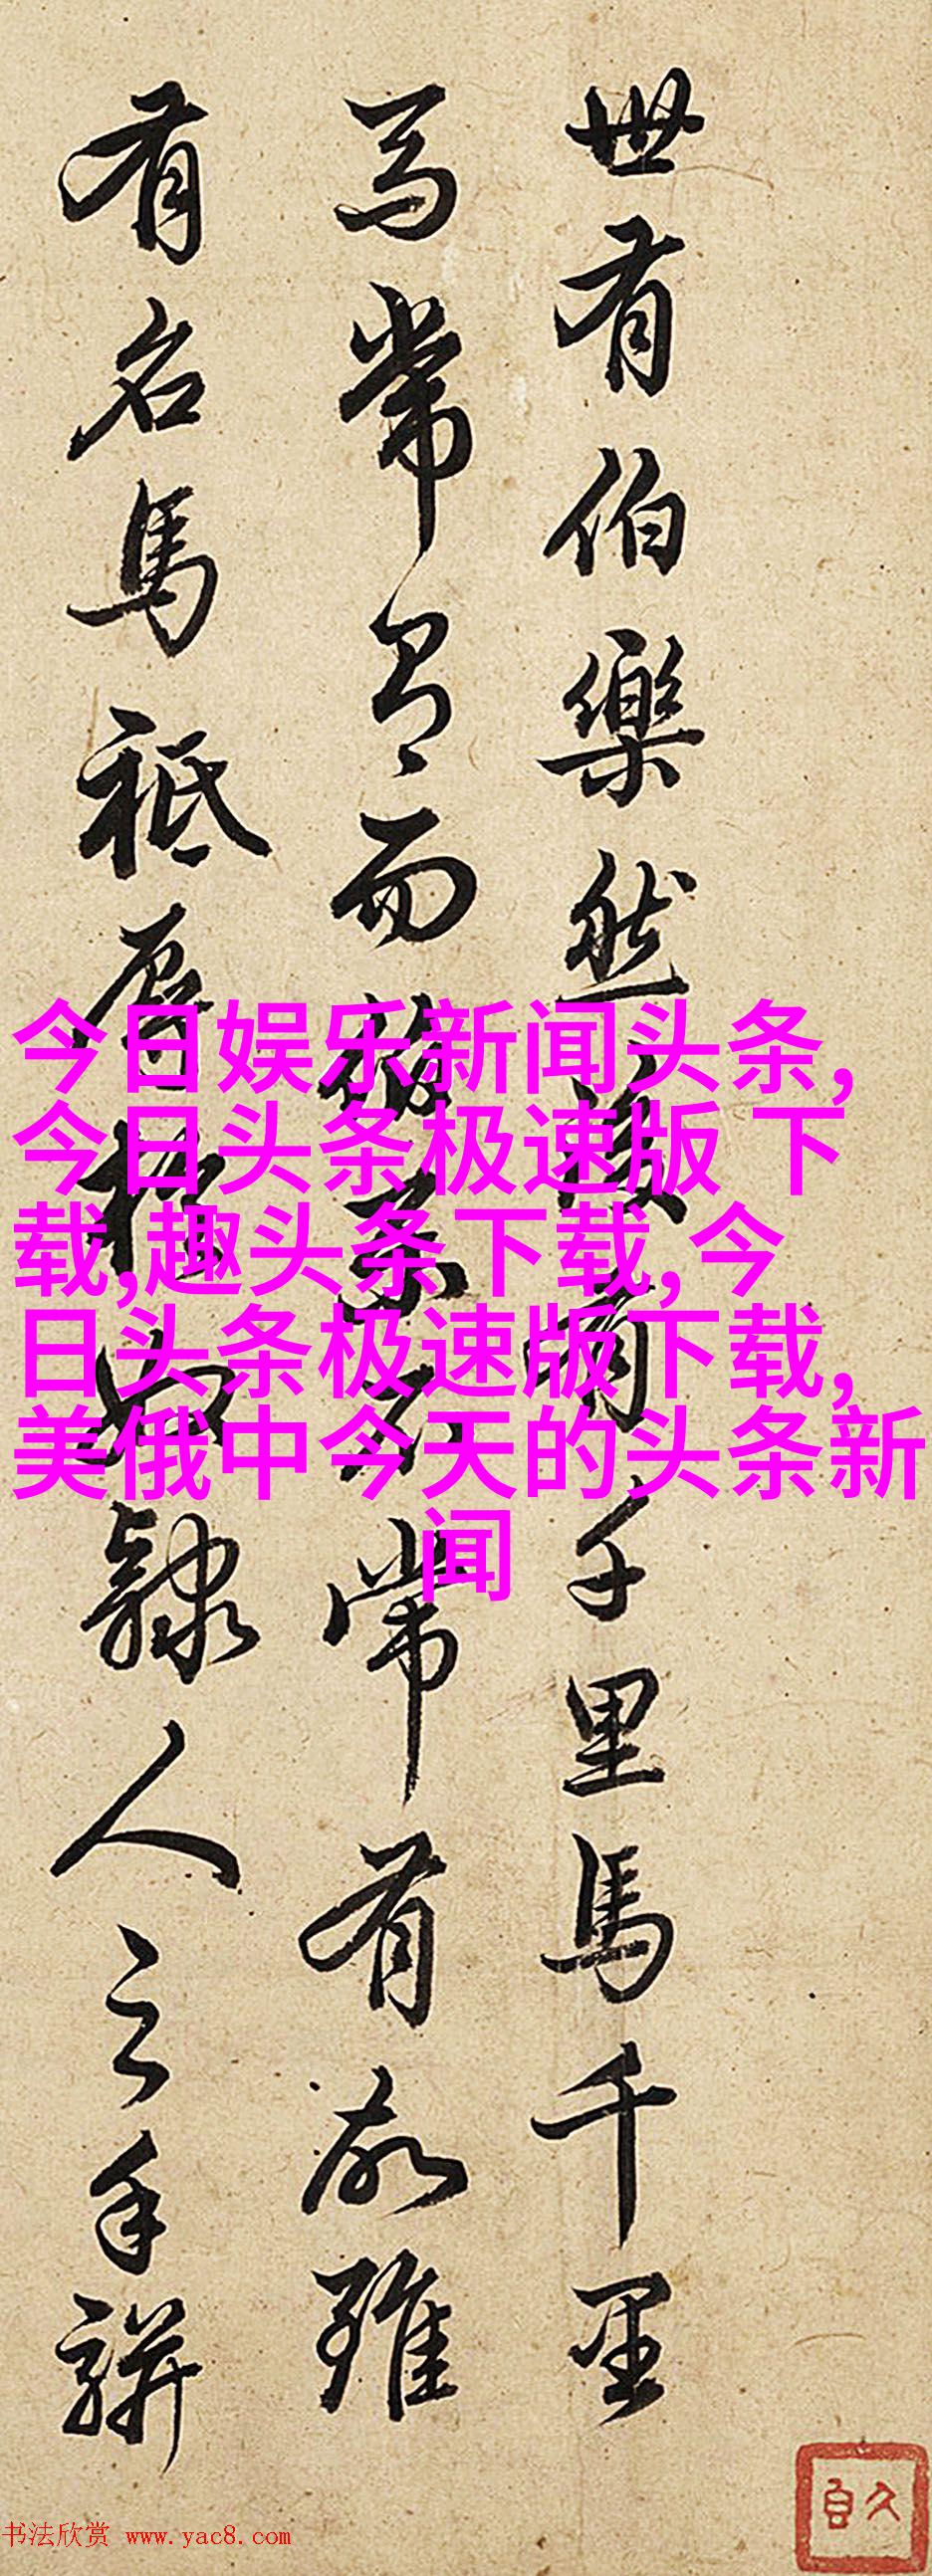 世有伯樂然後有千里馬千里
馬常有而伯樂不常有故雖
有名馬祗辱於奴隸人之手駢
今日娱乐新闻头条,
今日头条极速版 下
载,趣头条下载,今
日头条极速版下载,
美俄中今天的头条新
闻
书法欣赏 www.yac8.com